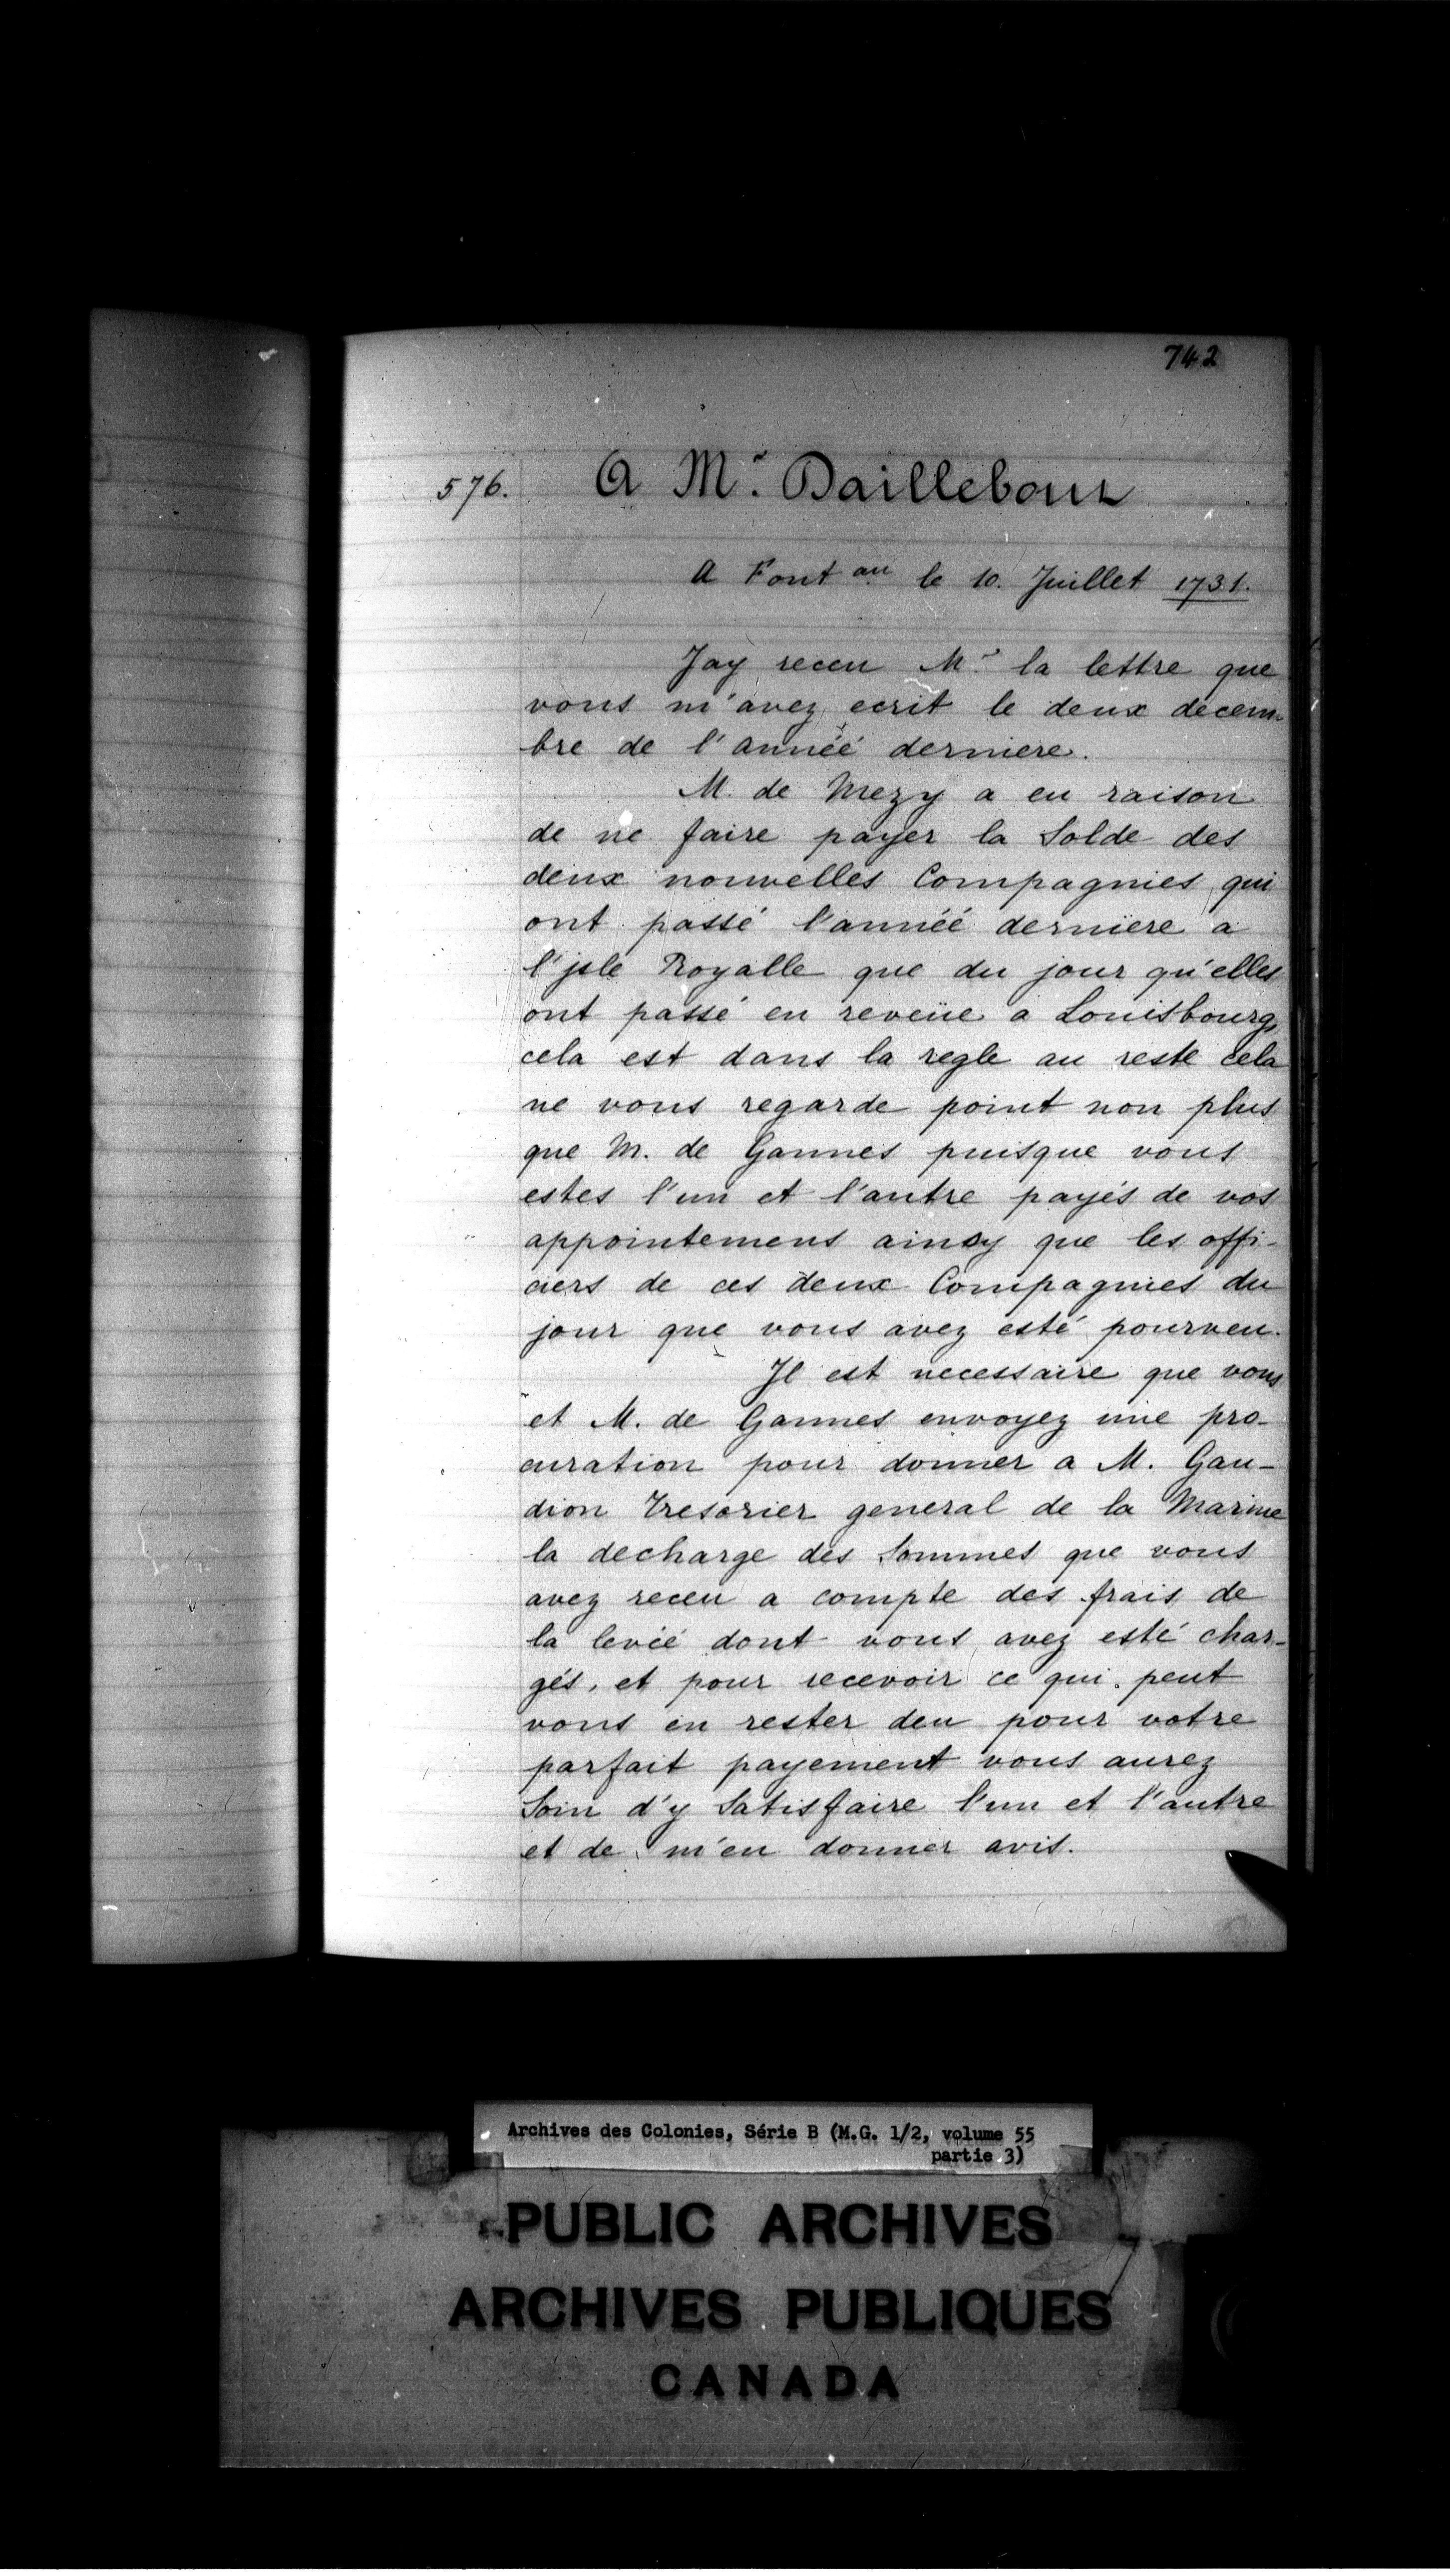 742
576. A Mr. Daillebour
A Font au le 10. Juillet 1731.
Jay receu Mr. la lettre que
vous m'avez ecrit le deux decem-
bre de l'année derniere.
M. de Mezy a eu raison
de ne faire payer la Solde des
deux nouvelles Compagnies qui
ont passé l'année derniere a
l'jsle Royalle que du jour qu'elles
ont passé en reveüe a Louisbourg
cela est dans la regle au reste cela
ne vous regarde point non plus
que M. de Gannes puisque vous
estes l'un et l'autre payés de vos
appointemens ainsy que les offi-
ciers de ces deux Compagnies du
jour que vous avez esté pourveu.
Il est necessaire que vous
et M. de Gannes envoyez une pro-
curation pour donner a M. Gau-
dion Tresorier general de la Marine
la decharge des Sommes que vous
avez receu a compte des frais de
la levée dont vous avez esté char-
gés, et pour recevoir ce qui peut
vous en rester deu pour votre
parfait payement vous aurez
Soin d'y Satisfaire l'un et l'autre
et de m'en donner avis.
Archives des Colonies, Série B (M.G. 1/2, volume 55
partie 3)
PUBLIC ARCHIVES
ARCHIVES PUBLIQUES
CANADA